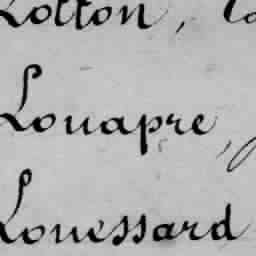 Lotton,
Louapre,
Louessard